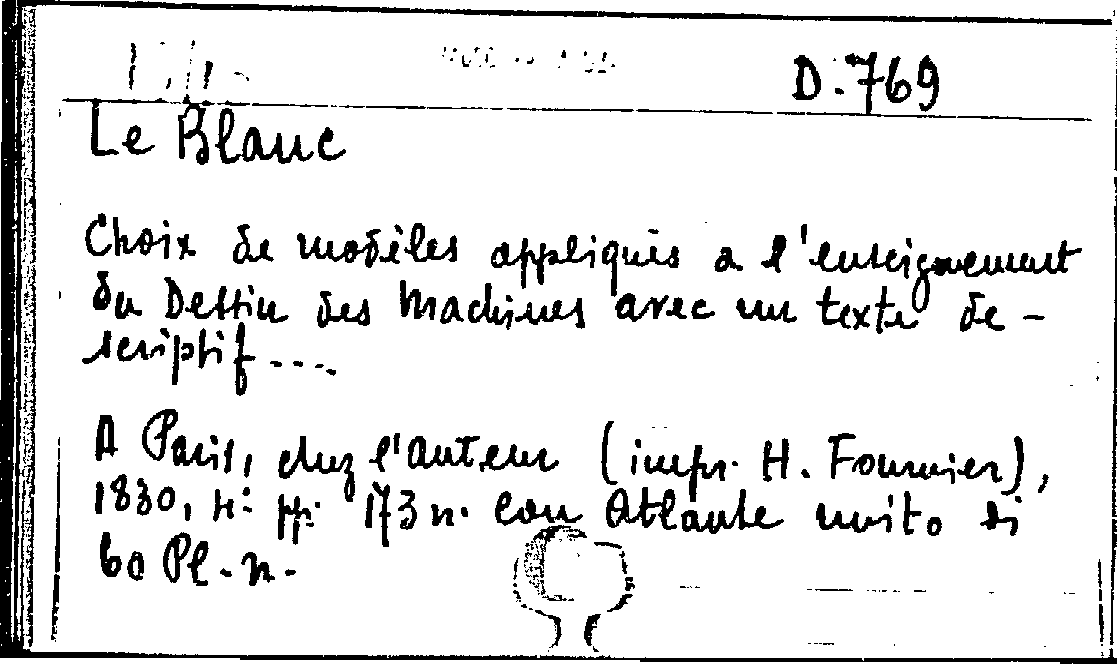 D. 769
Le Blanc
Choix de modèles appliqués a l'enseignement
du Dessin des Machines avec un texte de-
scriptif....
A Paris, chez l'Auteur (impr. H. Fournier),
1830, 4º pp. 173 n. con Atlante unito di
60 Pl. n.